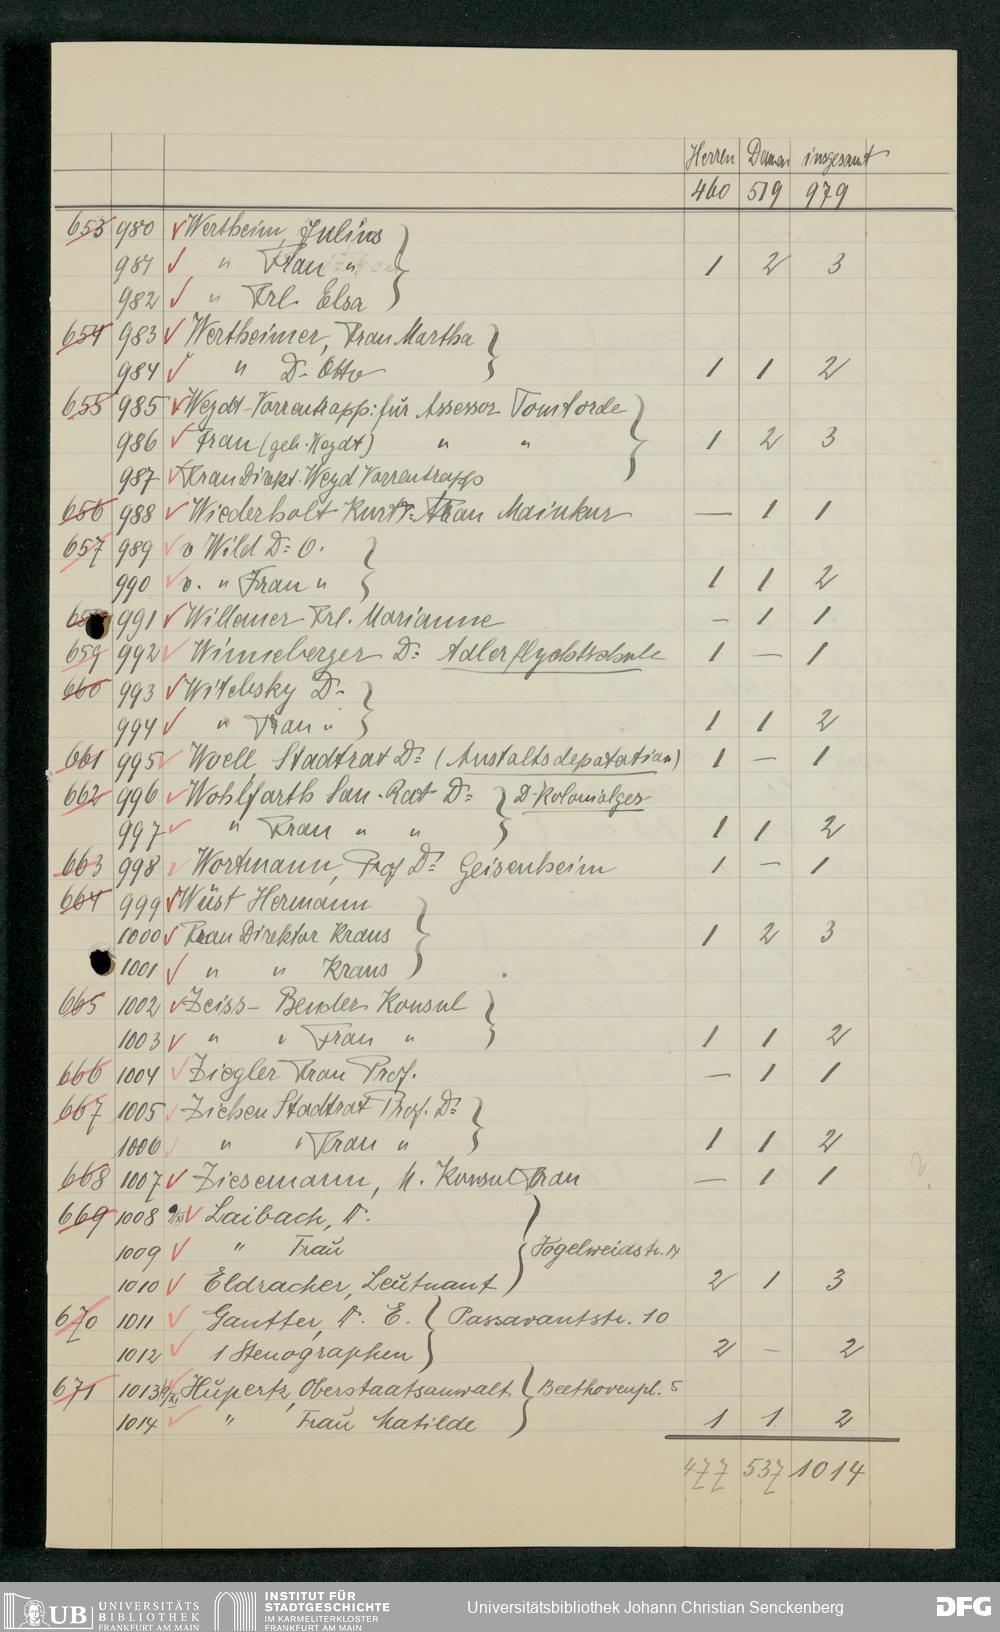 Herren Damen insgesamt
460 519 979
653 980 Wertheim, Julius
981 " Frau " 1 2 3
982 " Frl. Elsa
654 983 Wertheimer, Frau Martha
984 " Dr. Otto 1 1 2
655 985 Weydt-Varrentrapp: für Assessor Tomforde
986 Frau (geb. Weydt) " " 1 2 3
987 Frau Direkt. Weyd Varrentrapp
656 988 Wiederholt Frau Mainkur — 1 1
657 989 v Wild Dr: O.
990 v. " Frau " 1 1 2
991 Willemer Frl. Marianne — 1 1
659 992 Winneberger Dr: Adlerflychtschule 1 — 1
660 993 Witebsky Dr.
994 " Frau " 1 1 2
661 995 Woell Stadtrat Dr: (Anstaltsdeputation) 1 — 1
662 996 Wohlfarth San.-Rat Dr: D. Kolonialges.
997 " Frau " " 1 1 2
663 998 Wortmann, Prof Dr: Geisenheim 1 — 1
664 999 Wüst Hermann
1000 Frau Direktor Kraus 1 2 3
1001 " " Kraus
665 1002 Zeiss-Bender Konsul
1003 " " Frau " 1 1 2
666 1004 Ziegler Frau Prof. — 1 1
667 1005 Ziehen Stadtrat Prof. Dr:
1006 " " Frau " 1 1 2
668 1007 Ziesemann, Konsul Frau — 1 1
669 1008 Laibach, Dr.
1009 " Frau Vogelweidstr. 14
1010 Eldracher, Leutnant 2 1 3
670 1011 Gautter, Dr. E. Passavantstr. 10
1012 1 Stenographen 2 — 2
671 1013 Hupertz, Oberstaatsanwalt Beethovenpl. 5
1014 " Frau Matilde 1 1 2
477 537 1014
UB UNIVERSITÄTS
BIBLIOTHEK
FRANKFURT AM MAIN
INSTITUT FÜR
STADTGESCHICHTE
IM KARMELITERKLOSTER
FRANKFURT AM MAIN
Universitätsbibliothek Johann Christian Senckenberg
DFG